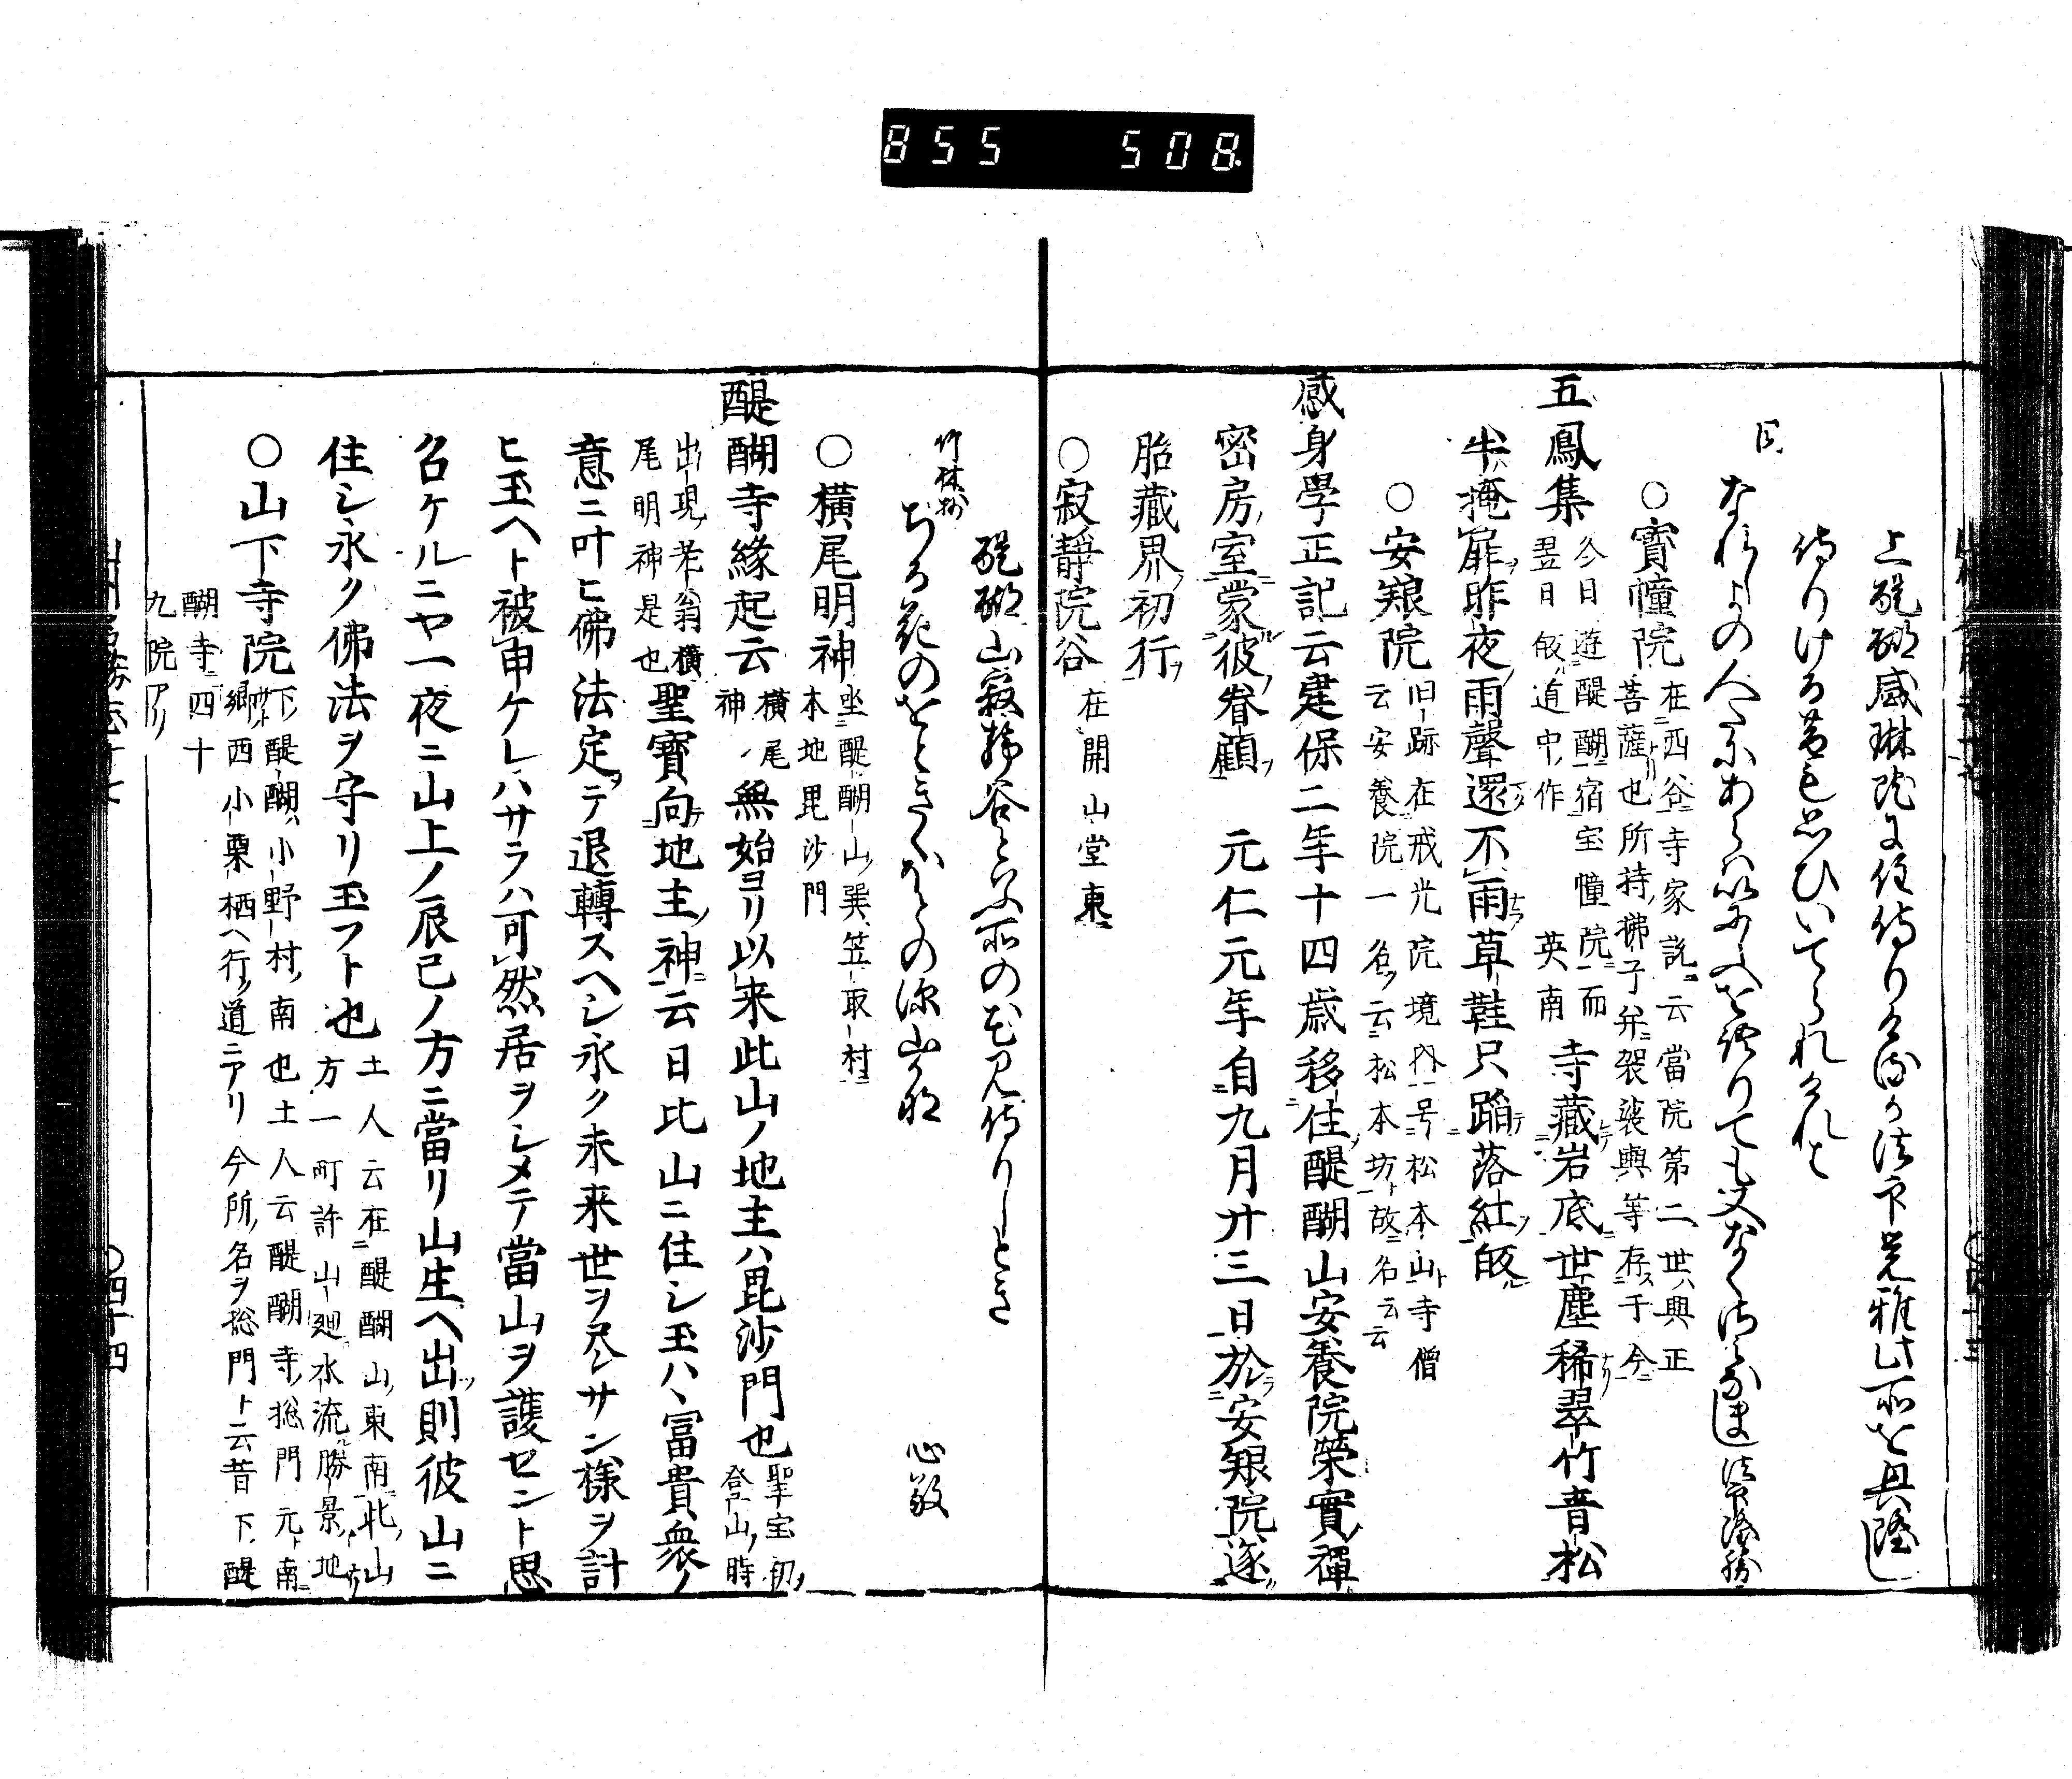 855 508
上醍醐盛琳院に住侍りける法印光雅此所を興隆し
侍りける昔を思ひいてられけれは
同
寶幢院
在西谷寺家説云當院第二世ハ典正
菩薩也所持拂子并袈裟輿等存于今
五鳳集
今日遊醍醐宿宝幢院而
翌日皈道中作 英南
寺藏岩底世塵稀翠竹音松
牛掩扉昨夜雨聲還不雨草鞋只蹈落紅皈
○安艱院
旧跡在戒光院境内号松本山寺僧
云安養院一名云松本坊故名云云
感身學正記云建保二年十四歳移住醍醐山安養院榮實禪
密房室蒙彼眷顧 元仁元年自九月廿三日於安艱院遂
胎藏界初行
○寂靜院谷 在開山堂東
醍醐山寂静谷といふ所の花見侍りしとき
竹林抄
ちる花のをときくほとの深山かな 心敬
○横尾明神
坐醍醐山巽笠取村
本地毘沙門
醍醐寺縁起云
横尾
神
無始ヨリ以来此山ノ地主ハ毘沙門也
聖宝初
登山時
出現老翁横
尾明神是也
聖寶向地主神云曰比山ニ住シ玉ハヽ冨貴衆ノ
意ニ叶ヒ佛法定テ退轉スヘシ永ク未来世ヲ尽サン様ヲ計
ヒ玉ヘト被申ケレハサラハ可然居ヲシメテ當山ヲ護セント思
召ケルニヤ一夜ニ山上ノ辰己ノ方ニ當リ山生ヘ出則彼山ニ
住シ永ク佛法ヲ守リ玉フト也
土人云在醍醐山東南北山
方一町許山廻水流勝景地
○山下寺院
下醍醐小野村南也土人云醍醐寺惣門元南
郷西小栗栖ヘ行道ニアリ今所名ヲ惣門ト云昔下醍
醐寺四十
九院アリ
四十四